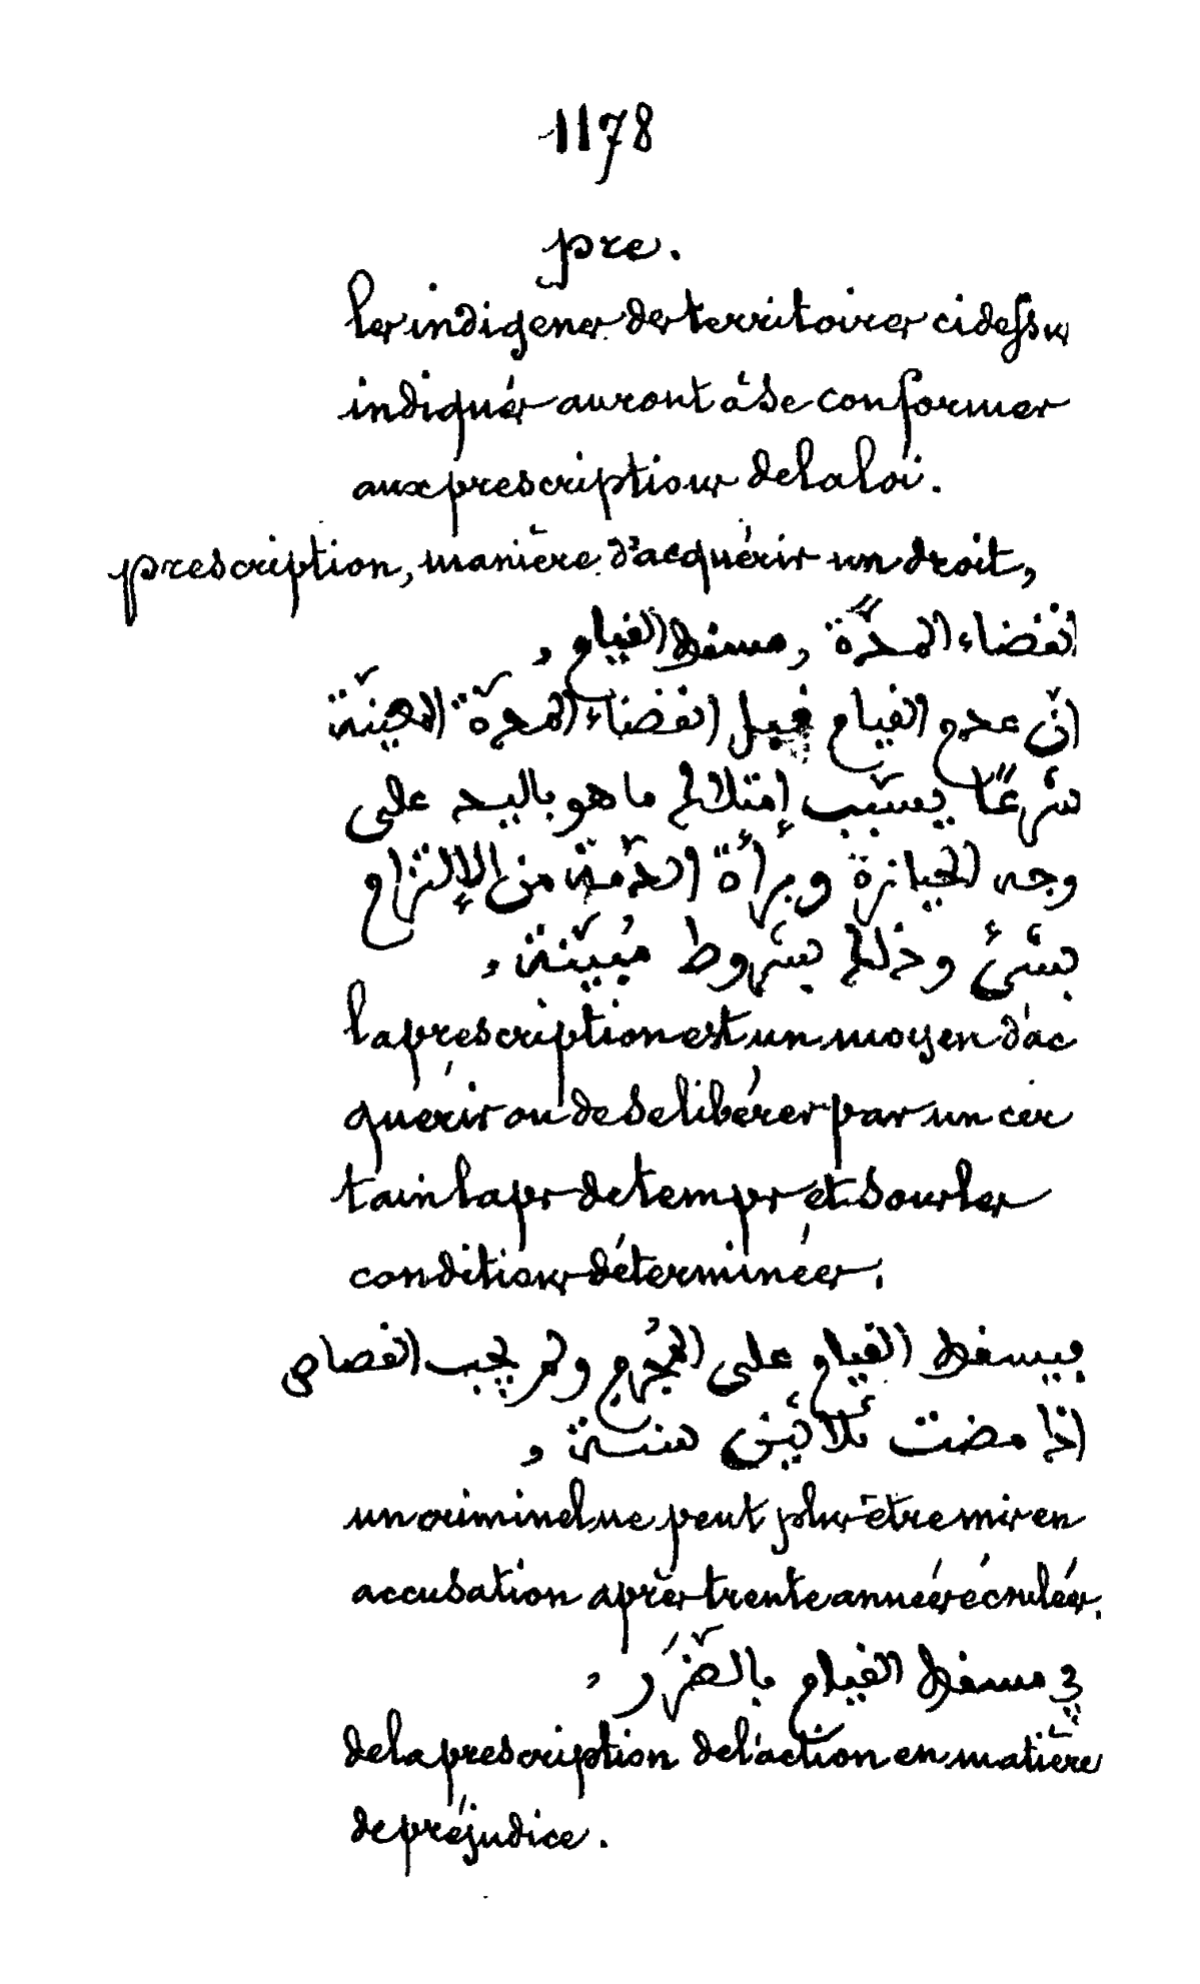 1178
pre.
les indigènes des territoires ci dessus
indiqués auront à se conformer
aux prescriptions de la loi.
prescription, manière d'acquérir un droit,
انقضاء المدّة, مسقط القيام,
انّ عدم القيام قبل انقضاء المدّة المعيّنة
شرعًا يسبّب إمتلاك ما هو باليد على
وجه الحيازة وبرأة الذمّة من الإلتزام
بشئ وذلك بشروط مُبيّنة,
la prescription est un moyen d'ac
quérir ou de se libérer par un cer
tain laps de temps et sous les
conditions déterminées.
فيسقط القيام على المُجرم ولم يجب القصاص
اذا مضت ثلاثين سنة,
un criminel ne peut plus être mis en
accusation après trente années écoulées.
في مسقط القيام بالضّرَر,
de la prescription de l'action en matière
de préjudice.